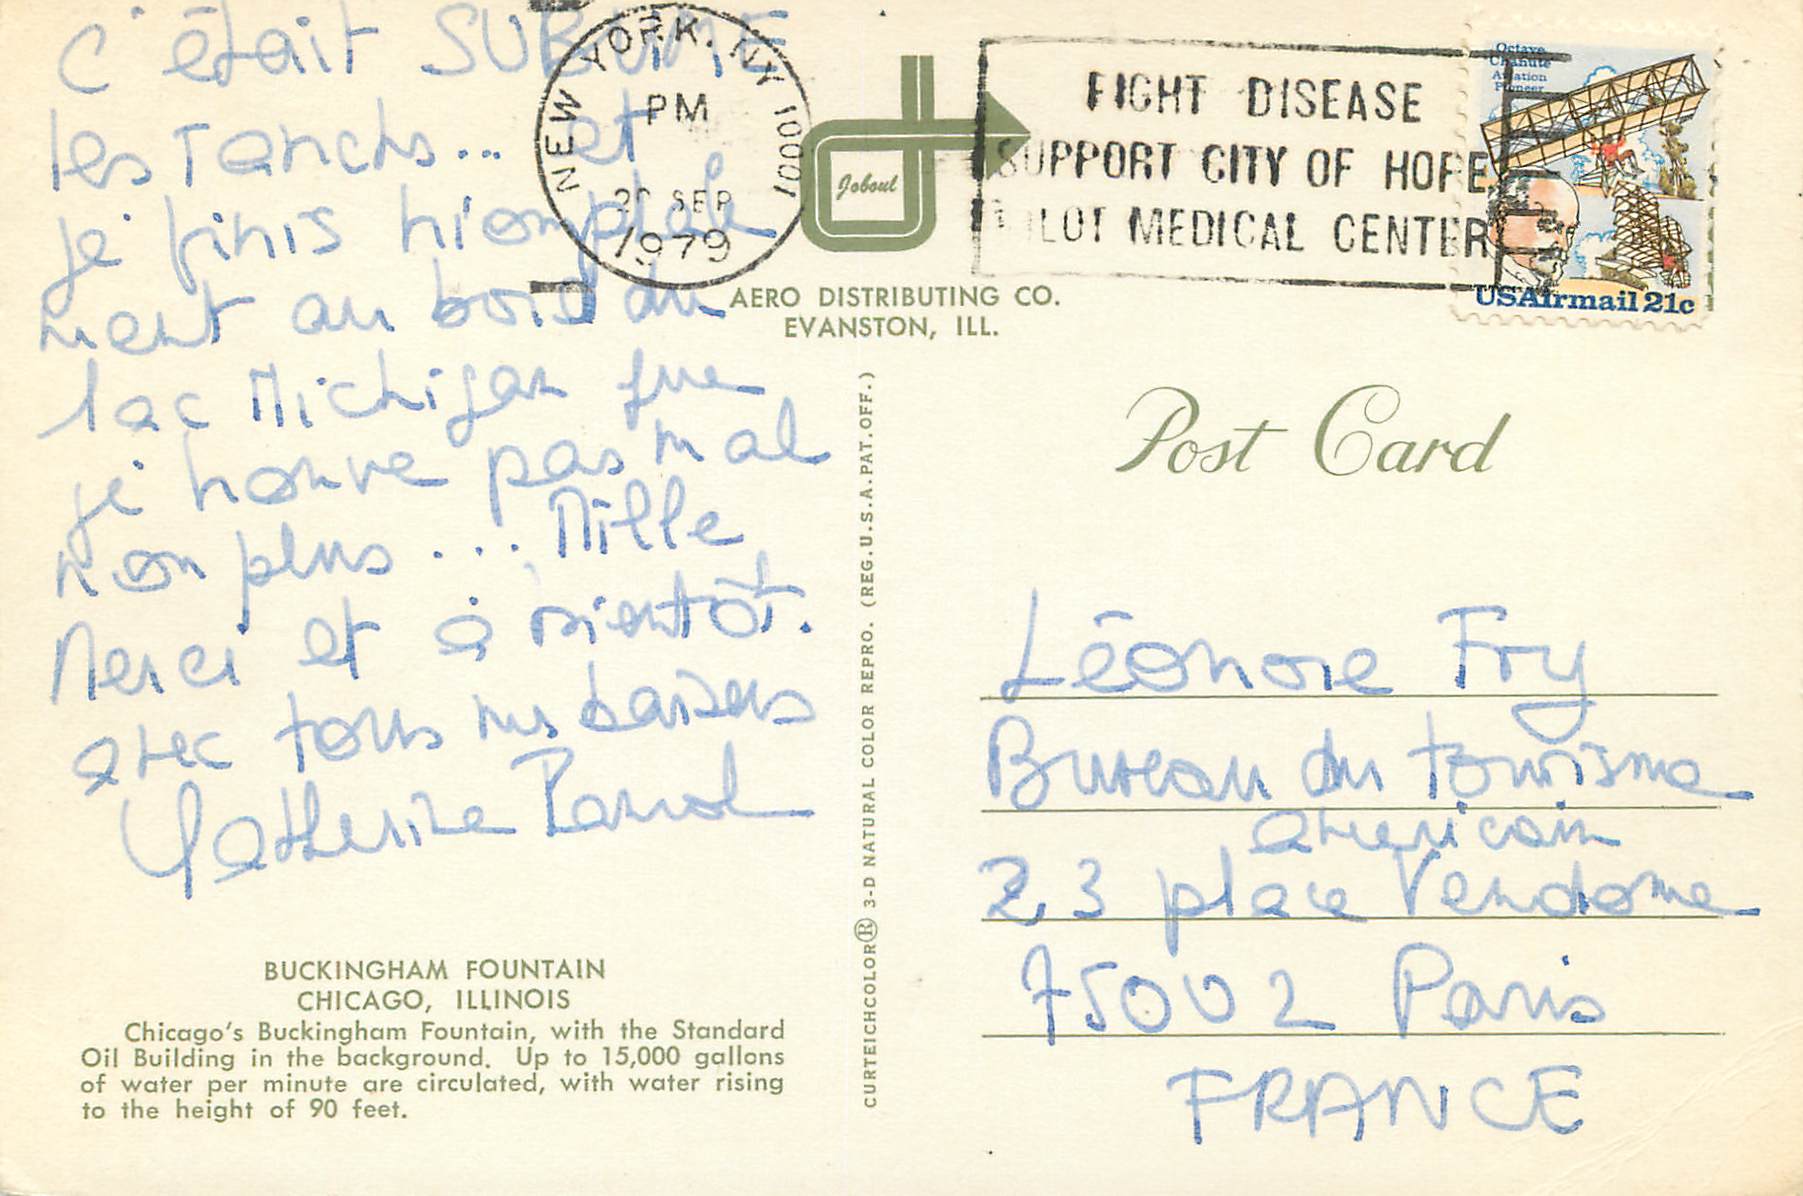 c'était SUBLIME
les ranchs... et
je finis triomphale
ment au bord du
lac Michigan que
je trouve pas mal
non plus... Mille
Merci et à bientôt.
avec tous mes baisers
Catherine
NEW YORK, NY 10001
PM
SEP
1979
FIGHT DISEASE
SUPPORT CITY OF HOPE
PILOT MEDICAL CENTER
Octave
Chanute
Aviation
Pioneer
USAirmail 21c
Joboul
AERO DISTRIBUTING CO.
EVANSTON, ILL.
Post Card
CURTEICHCOLOR® 3-D NATURAL COLOR REPRO. (REG. U.S.A. PAT. OFF.)
Léonore Fry
Bureau du tourisme
americain
23 place Vendome
75002 Paris
FRANCE
BUCKINGHAM FOUNTAIN
CHICAGO, ILLINOIS
Chicago's Buckingham Fountain, with the Standard
Oil Building in the background. Up to 15,000 gallons
of water per minute are circulated, with water rising
to the height of 90 feet.